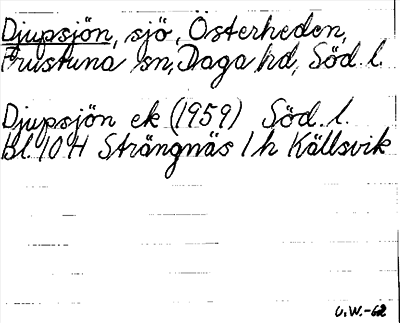 Djupsjön, sjö, Österheden,
Frustuna sn, Daga hd, Söd. l.
Djupsjön ek (1959) Söd. l.
Bl. 10 H Strängnäs 1 h Källsvik
U.W.-62